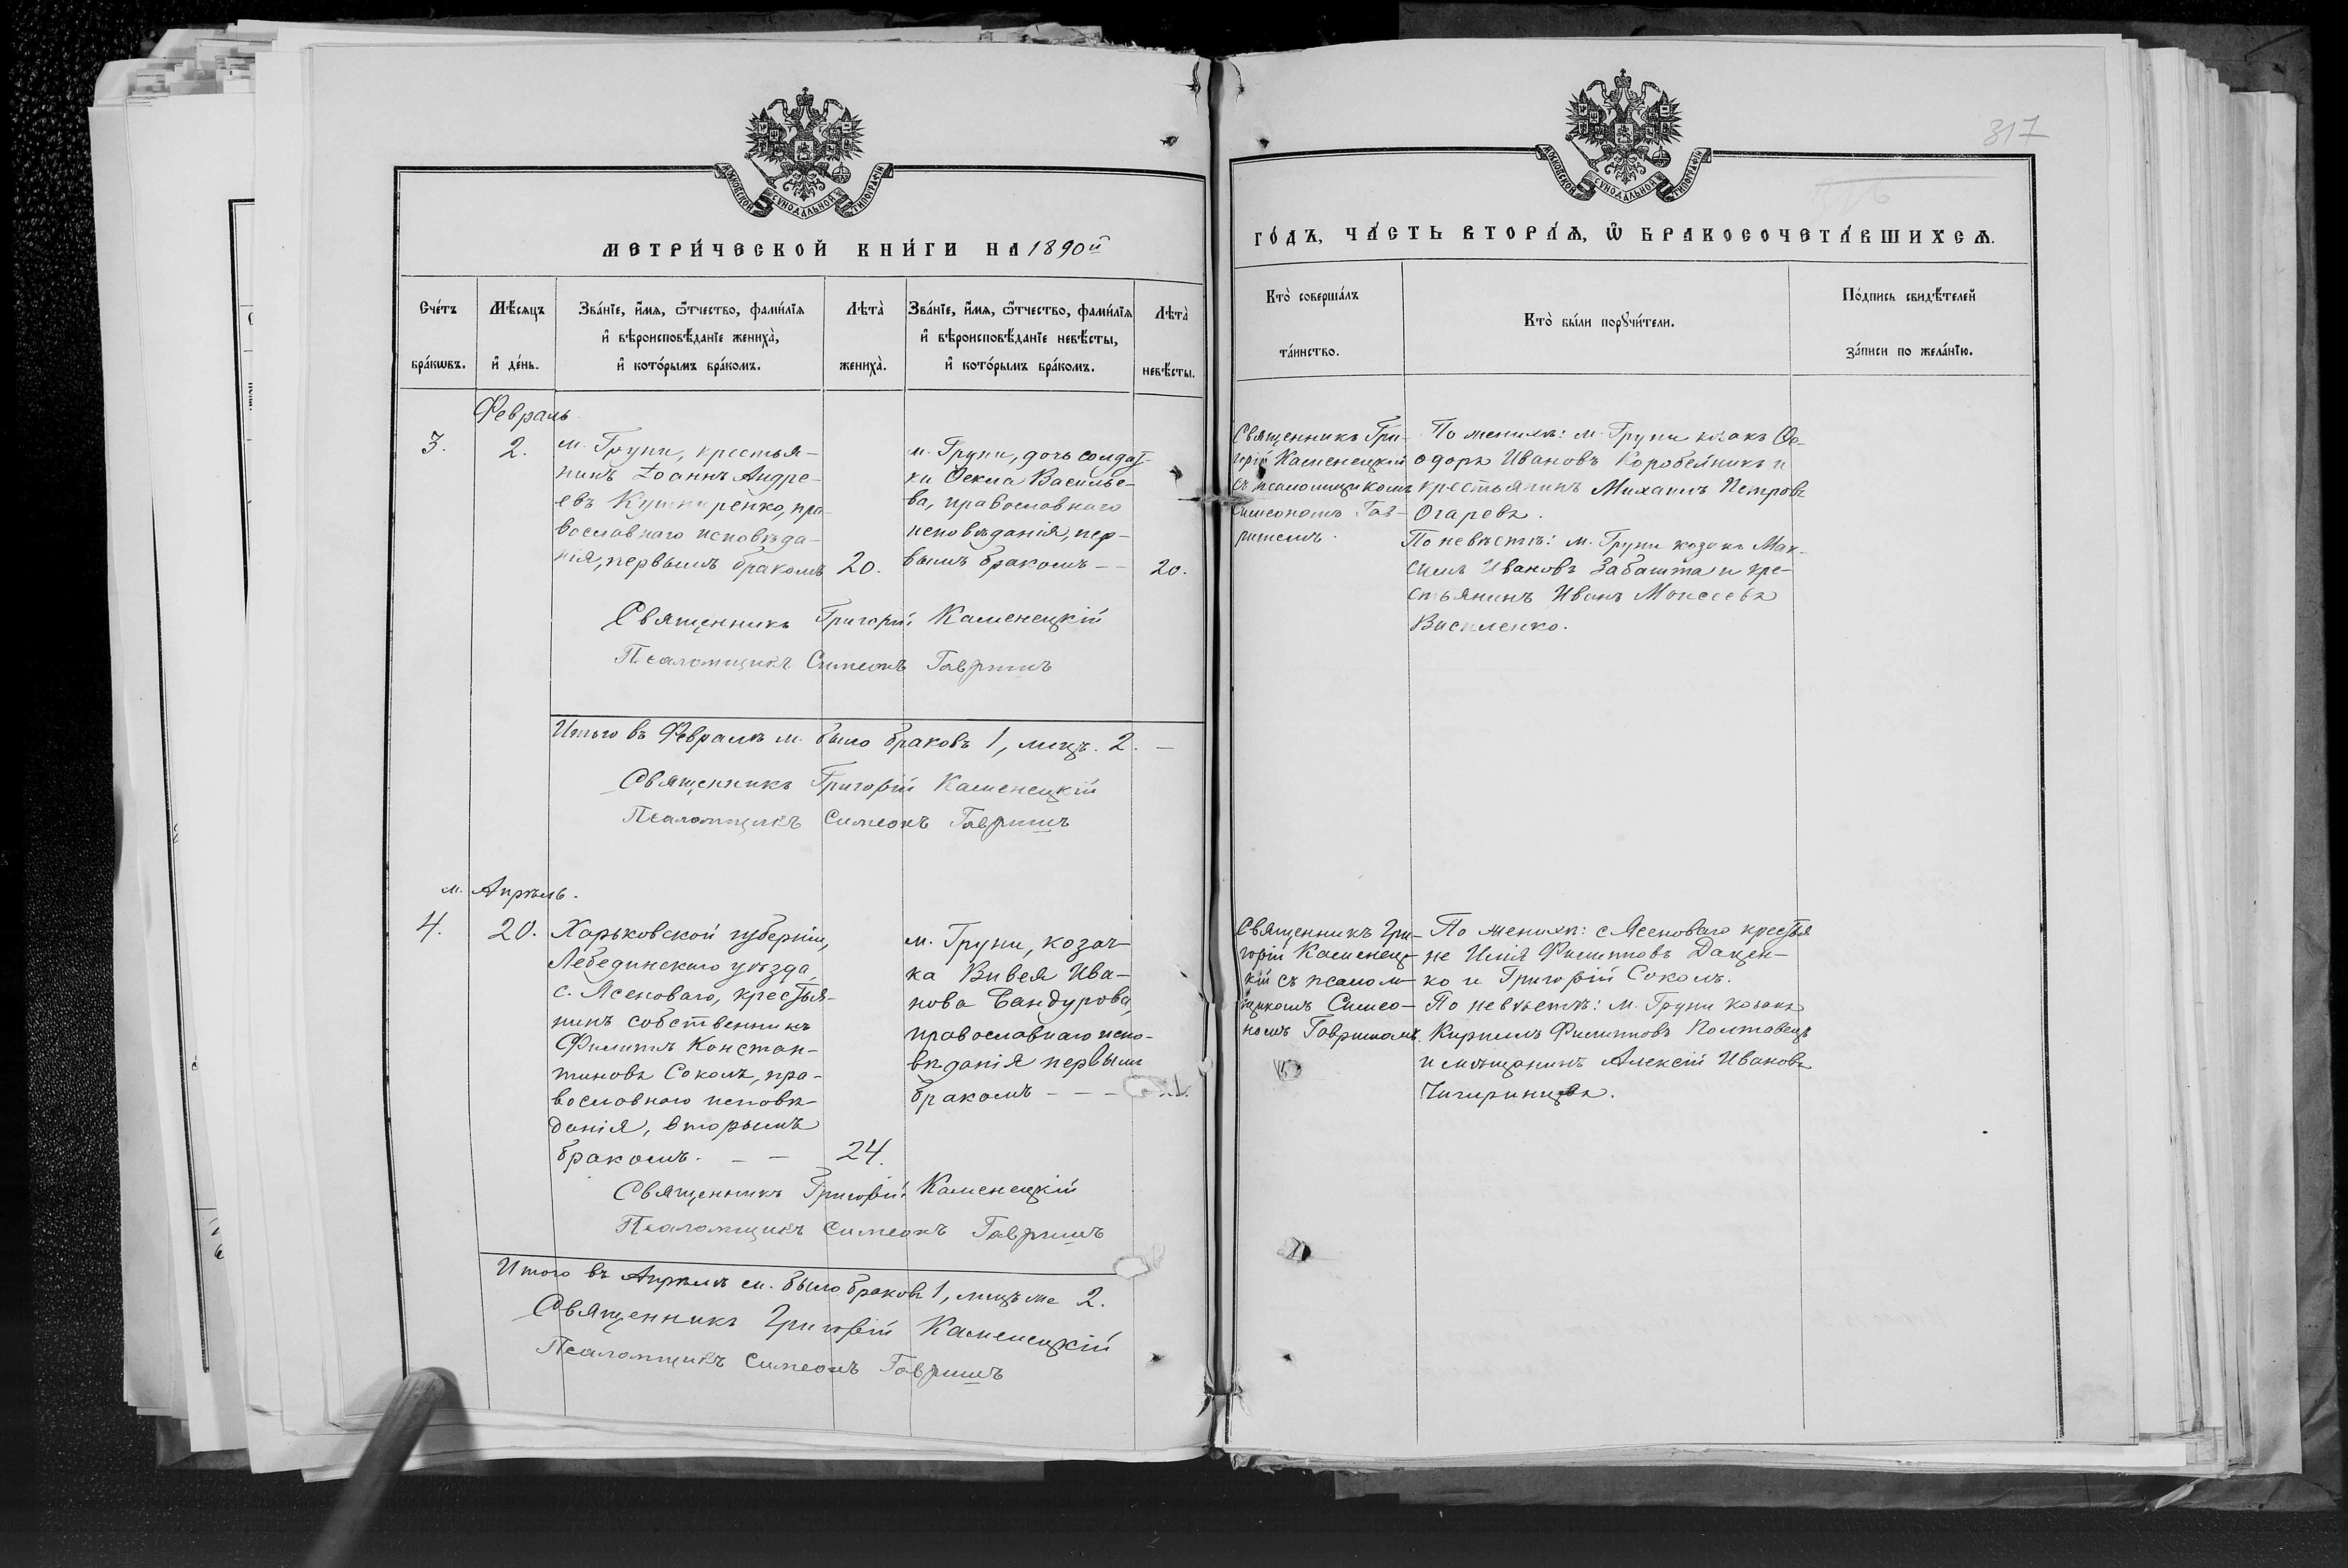 МОСКОВСКОЙ СѴНОДАЛЬНОЙ ТИПОГРАФІИ
МЕТРИ́ЧЕСКОЙ КНИ́ГИ НА 1890й
Сче́тъ бра́кѡвъ.
Мѣ́сяцъ и҆ де́нь.
Зва́нїе, и҆́мѧ, ѻ҆́тчество, фами́лїѧ и҆ вѣроисповѣ́данїе жениха̀, и҆ кото́рымъ бра́комъ.
Лѣта̀ жениха̀.
Зва́нїе, и҆́мѧ, ѻ҆́тчество, фами́лїѧ и҆ вѣроисповѣ́данїе невѣ́сты, и҆ кото́рымъ бра́комъ.
Лѣта̀ невѣ́сты.
Февраль
3.
2.
м. Груни, крестья-
нинъ Іоаннъ Андре-
евъ Кушниренко, пра-
вославнаго исповѣда-
нія, первымъ бракомъ
20.
м. Груни, дочь солдат-
ки Ѳекла Василье-
ва, православнаго
исповѣданія, пер-
вымъ бракомъ - -
20.
Священникъ Григорій Каменецкій
Псаломщикъ Симеонъ Гавришъ
Итого въ Февралѣ м. было браковъ 1, лицъ. 2. —
Священникъ Григорій Каменецкій
Псаломщикъ Симеонъ Гавришъ
м. Апрѣль.
4.
20.
Харьковской губерніи,
Лебединскаго уѣзда,
с. Ясеноваго, крестья-
нинъ собственникъ
Филиппъ Констан-
тиновъ Соколъ, пра-
вославнаго исповѣ-
данія, вторымъ
бракомъ. — —
24.
м. Груни, козач-
ка Вивея Ива-
нова Бандурова,
православнаго испо-
вѣданія первымъ
бракомъ - - -
Священникъ Григорій Каменецкій
Псаломщикъ Симеонъ Гавришъ
Итого въ Апрѣлѣ м. было браковъ 1, лицъ же 2.
Священникъ Григорій Каменецкій
Псаломщикъ Симеонъ Гавришъ
317
МОСКОВСКОЙ СѴНОДАЛЬНОЙ ТИПОГРАФІИ
ГО́ДЪ, ЧА́СТЬ ВТОРА́Ѧ, Ѽ БРАКОСОЧЕТА́ВШИХСѦ.
Кто̀ соверша́лъ та́инство.
Кто̀ бы́ли порꙋчи́тели.
По́дпись свидѣ́телей за́писи по жела́нїю.
Священникъ Гри-
горій Каменецкій
съ псаломщикомъ
Симеономъ Гав-
ришемъ.
По женихѣ: м. Груни козакъ Ѳе-
одоръ Ивановъ Коробейникъ и
крестьянинъ Михаилъ Петровъ
Огаревъ.
По невѣстѣ: м. Груни козакъ Мак-
симъ Ивановъ Забашта и кре-
стьянинъ Иванъ Моисеевъ
Василенко.
Священникъ Гри-
горій Каменец-
кій съ псалом-
щикомъ Симео-
номъ Гавришомъ.
По женихѣ: с Ясеноваго крестья
не Илія Филипповъ Дацен-
ко и Григорій Соколъ.
По невѣстѣ: м. Груни козакъ
Кириллъ Филипповъ Полтавецъ
и мѣщанинъ Алексій Ивановъ
Чигиринцевъ.